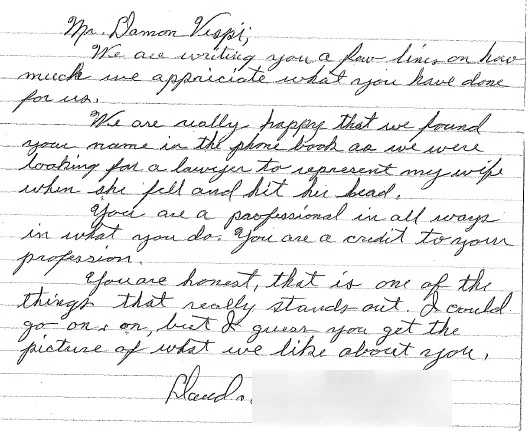 Mr. Damon Vispi;
We are writing you a few lines on how
much we appriciate what you have done
for us.
We are really happy that we found
your name in the phone book as we were
looking for a lawyer to represent my wife
when she fell and hit her head.
You are a professional in all ways
in what you do. You are a credit to your
profession.
You are honest, that is one of the
things that really stands out. I could
go on & on, but I guess you get the
picture of what we like about you.